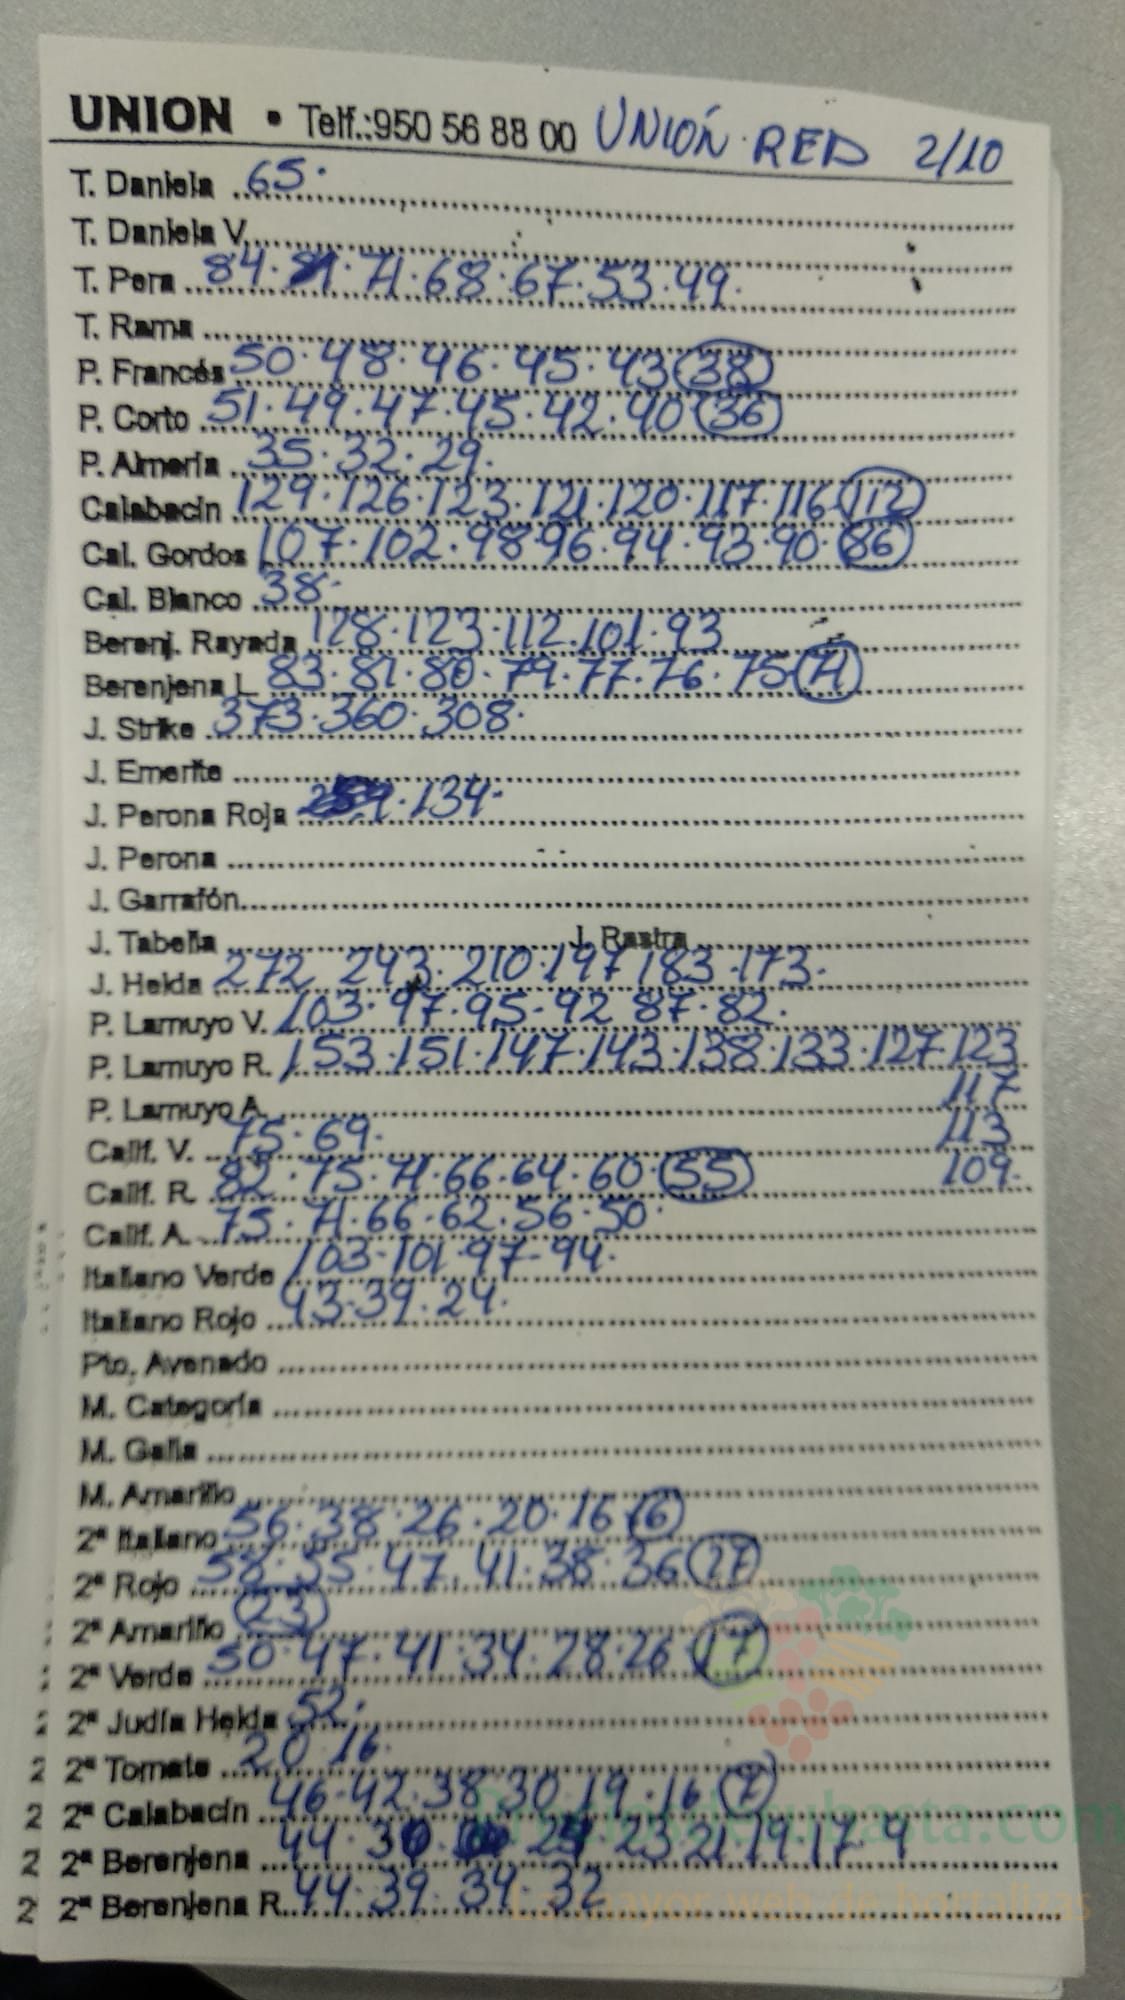 UNION • Telf.:950 56 88 00 UNIÓN RED 2/10
T. Daniela 65.
T. Daniela V.
T. Pera 84. 71. 68. 67. 53. 49.
T. Rama
P. Francés 50. 48. 46. 45. 43 (38)
P. Corto 51. 49. 47. 45. 42. 40 (36)
P. Almería 35. 32. 29.
Calabacín 129. 126. 123. 121. 120. 117. 116 (112)
Cal. Gordos 107. 102. 98 96. 94. 93. 90. (86)
Cal. Blanco 38.
Berenj. Rayada 128. 123. 112. 101. 93
Berenjena L 83. 81. 80. 79. 77. 76. 75 (71)
J. Strike 373. 360. 308.
J. Emerite
J. Perona Roja 134.
J. Perona
J. Garrafón
J. Tabella J. Rastra
J. Helda 272 243. 210. 197 183. 173.
P. Lamuyo V. 103. 97. 95. 92 87. 82.
P. Lamuyo R. 153. 151. 147. 143. 138. 133. 127. 123
P. Lamuyo A. 117
Calif. V. 75. 69. 113
Calif. R. 82. 75. 71. 66. 64. 60. (55) 109.
Calif. A. 75. 71. 66. 62. 56. 50.
Italiano Verde 103. 101. 97. 94.
Italiano Rojo 43. 39. 24.
Pto. Avenado
M. Categoría
M. Galia
M. Amarillo
2ª Italiano 56. 38. 26. 20. 16 (6)
2ª Rojo 58. 55. 47. 41. 38. 36 (27)
2ª Amarillo (23)
2ª Verde 50. 47. 41. 34. 28. 26 (17)
2ª Judía Helda 52.
2ª Tomate 20 16.
2ª Calabacín 46. 42. 38. 30. 19. 16 (7)
2ª Berenjena 44. 23. 21. 19. 17. 9
2ª Berenjena R. 44. 39. 34. 32
subasta.com
La mayor web de hortalizas